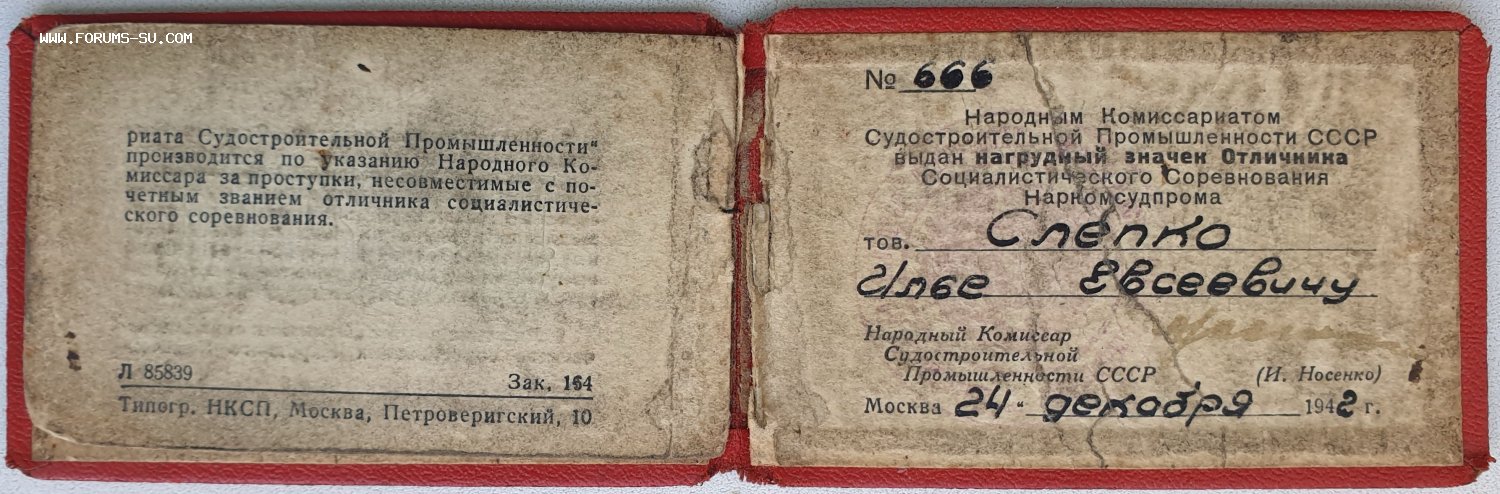 www.FORUMS-SU.COM
риата Судостроительной Промышленности"
производится по указанию Народного Ко-
миссара за проступки, несовместимые с по-
четным званием отличника социалистиче-
ского соревнования.
Л 85839
Зак. 164
Типогр. НКСП, Москва, Петроверигский, 10
№ 666
Народным Комиссариатом
Судостроительной Промышленности СССР
выдан нагрудный значек Отличника
Социалистического Соревнования
Наркомсудпрома
тов. Слепко
Илье Евсеевичу
Народный Комиссар
Судостроительной
Промышленности СССР (И. Носенко)
Москва 24 " декабря 1942 г.